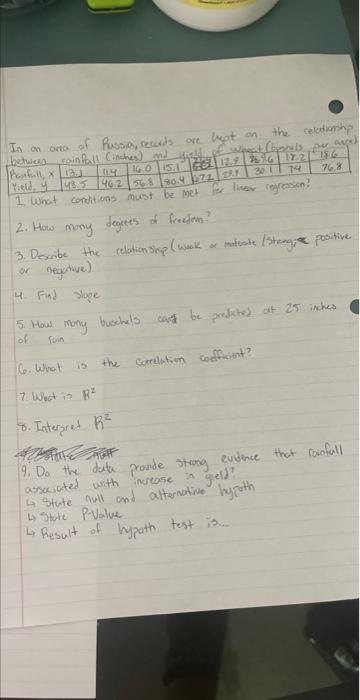 In an area of Russia, records are kept on the relationship
between rainfall (inches) and yield of wheat (bushels per acre)
Rainfall, x 13.1 11.4 16.0 15.1 12.9 9.6 18.2 18.6
Yield, y 48.5 46.2 56.8 80.4 30.1 74 76.8
1. What conditions must be met for linear regression?
2. How many degrees of freedom?
3. Describe the relationship (weak or moderate / strong; positive
or negative)
4. Find slope
5. How many buschels can be predicted at 25 inches
of rain
6. What is the correlation coefficient?
7. What is R²
8. Interpret R²
9. Do the data provide strong evidence that rainfall
associated with increase in yield?
↳ State null and alternative hypoth
↳ State P-Value
↳ Result of hypoth test is...